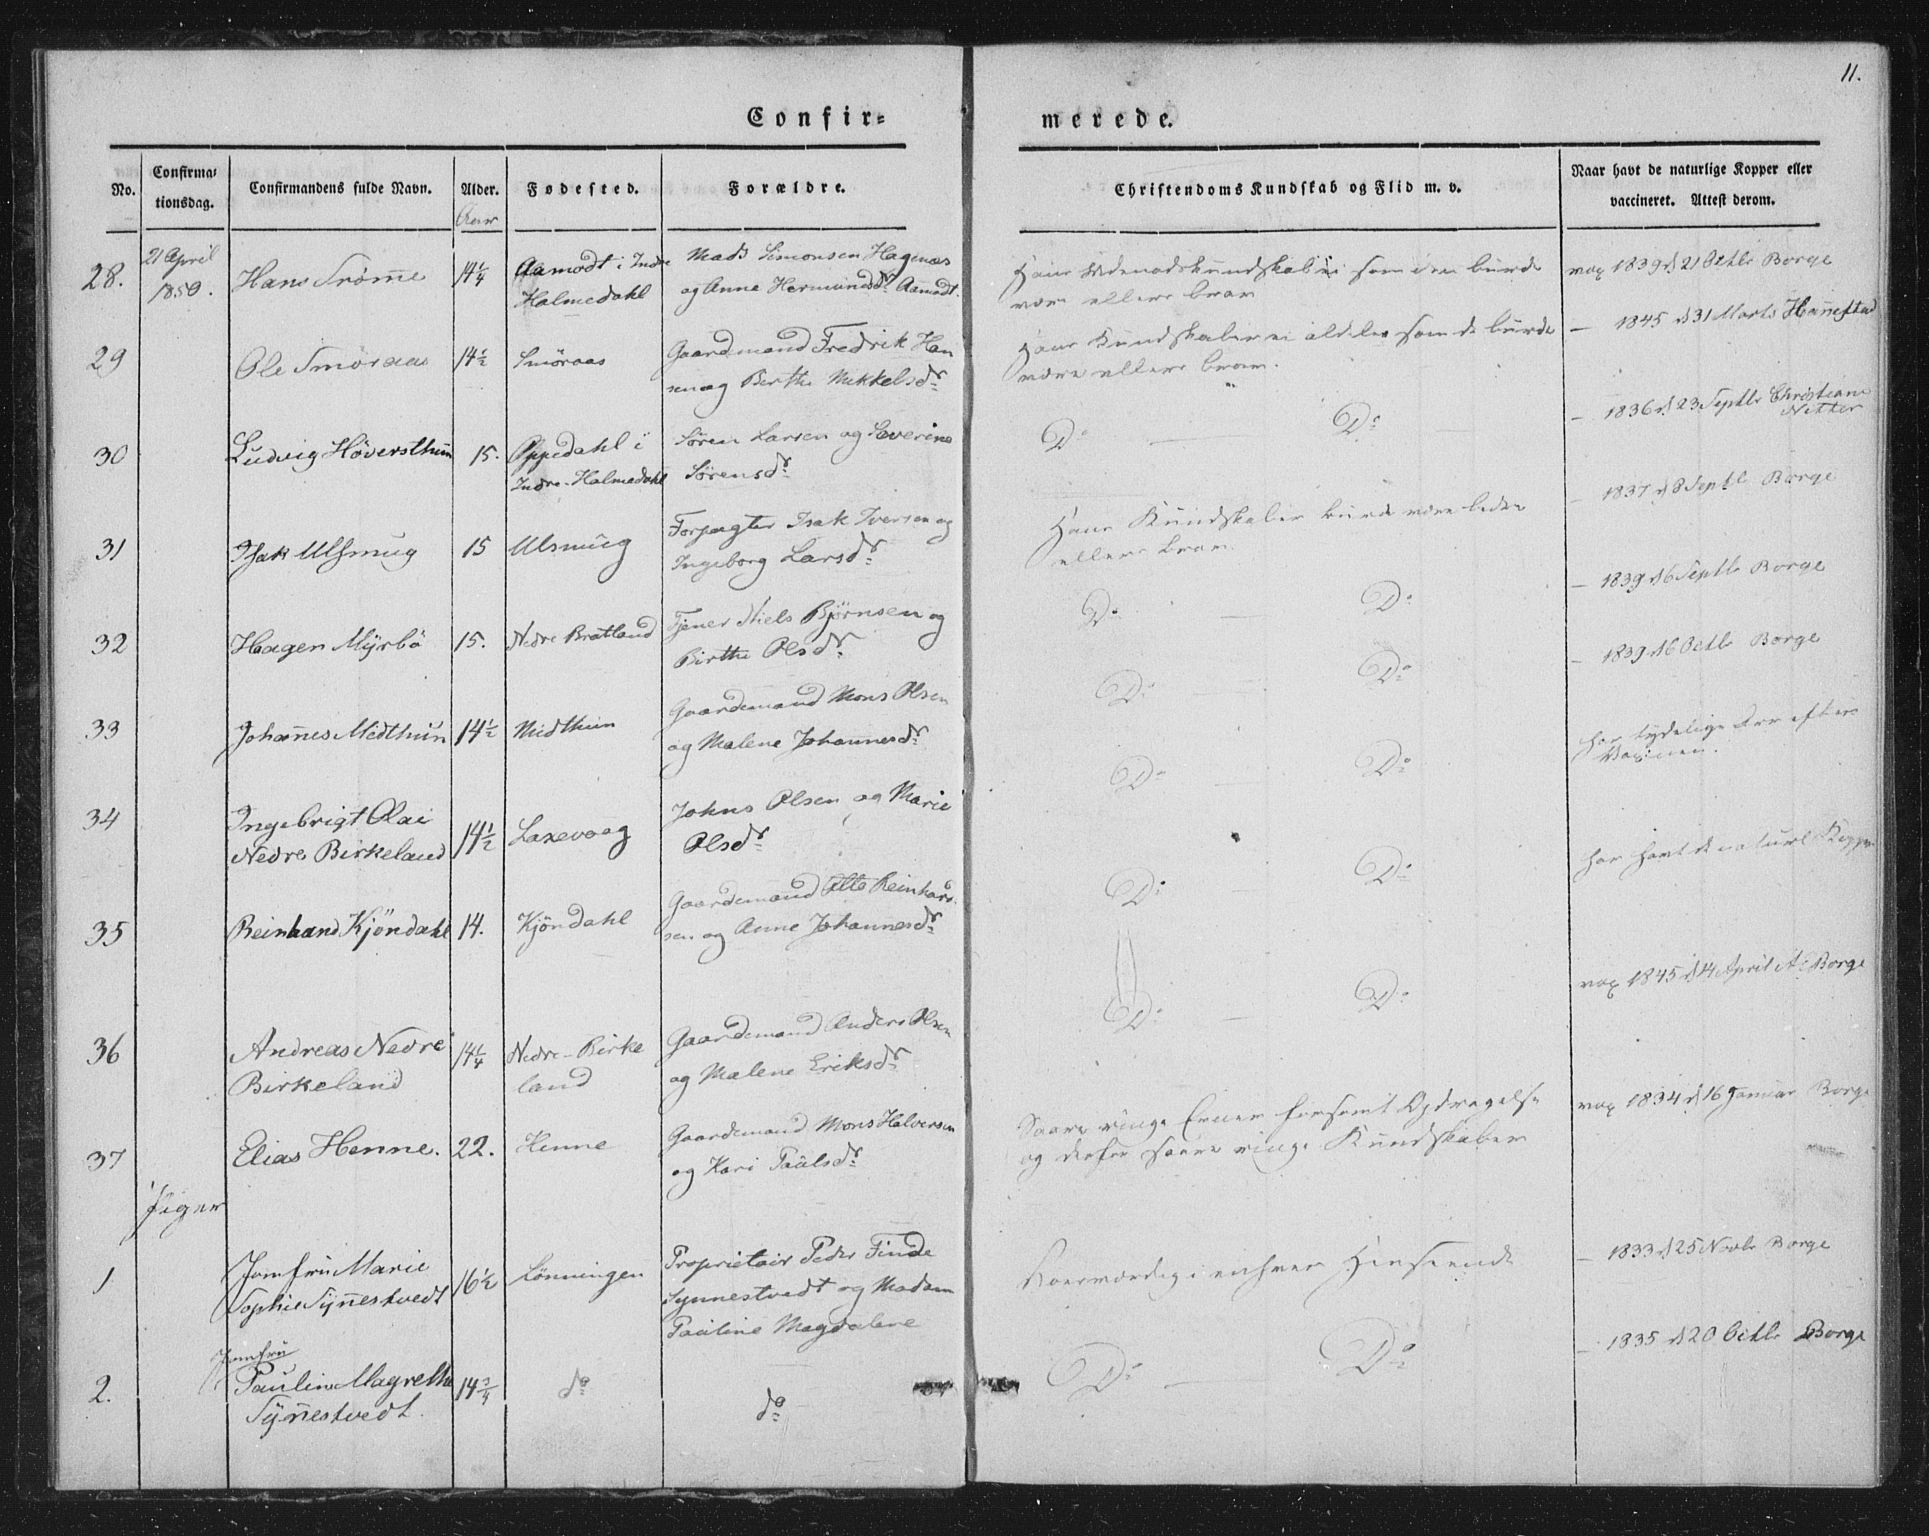 11.
Confir=
merede.
No.
Confirma=
tionsdag.
Confirmandens fulde Navn.
Alder.
Aar
Fødested.
Forældre.
Christendoms Kundskab og Flid m. v.
Naar havt de naturlige Kopper eller
vaccineret. Attest derom.
28.
21 April
1850.
Hans Trømme
14 1/4
Aamodt i Indre
Halmedahl
Mads Simonsen Hagenæs
og Anne Hermundsdr Aamodt.
være ellers brav
vax 1839 d 21 Octb Borge
29
Ole Smöraas
14 1/2
Smöraas
Gaardemand Fredrik Han
sen og Berthe Mikkelsdr
Hans Kundskaber ei aldeles som de burde
være ellers brav.
— 1845 d 31 Marts Hannestad
30
Ludvig Höversthun
15.
Oppedahl i
Indre-Halmedahl
Sören Larsen og Severine
Sörensdr
Do — Do —
— 1836 d 23 Septb Christiane
Nitter
31
Isak Ulsmug
15
Ulsmug
Forpagter Isak Iversen og
Ingeborg Larsdr
Hans Kundskaber burde være bedre
ellers brav.
— 1837 d 8 Septb Borge
32
Hagen Myrbö
15.
Nedre Bratland
Tjener Niels Bjørnsen og
Birthe Olsdr
Do — Do
— 1839 d 6 Septb Borge
33
Johannes Midthun
14 1/2
Midthun
Gaardemand Mons Olsen
og Malene Johannesdr
Do — Do
— 1839 d 6 Octb Borge
34
Ingebrigt Olai
Nedre Birkeland
14 1/2
Laxevaag
Johns Olsen og Marie
Olsdr
Do — Do
har tydelige Ar efter
Vaxinen.
35
Reinhard Kjöndahl
14.
Kjöndahl
Gaardemand Otto Reinhard
sen og Anne Johannesdr
Do — Do
har havt de naturl Kopper
36
Andreas Nedre
Birkeland
14 1/4
Nedre-Birke
land
Gaardemand Anders Olsen
og Malene Eriksdr
Do — Do
vax 1845 d 14 April A Borge
37
Elias Henne.
22.
Henne
Gaardemand Mons Halversen
og Kari Paulsdr
Saare ringe Evner forsømt Opdragelse
og derfor saare ringe Kundskaber
vax 1834 d 16 Januar Borge
Piger
1
Jomfru Marie
Sophie Synnestvedt
16 1/2
Lönningen
Proprietair Peder Finde
Synnestvedt og Madam
Pauline Magdalene
Roesværdig i enhver Henseende
— 1833 d 25 Novb Borge
2.
Jomfru
Pauline Magrethe
Synnestvedt.
14 3/4
do
do
Do — Do
— 1835 d 20 Octb Borge